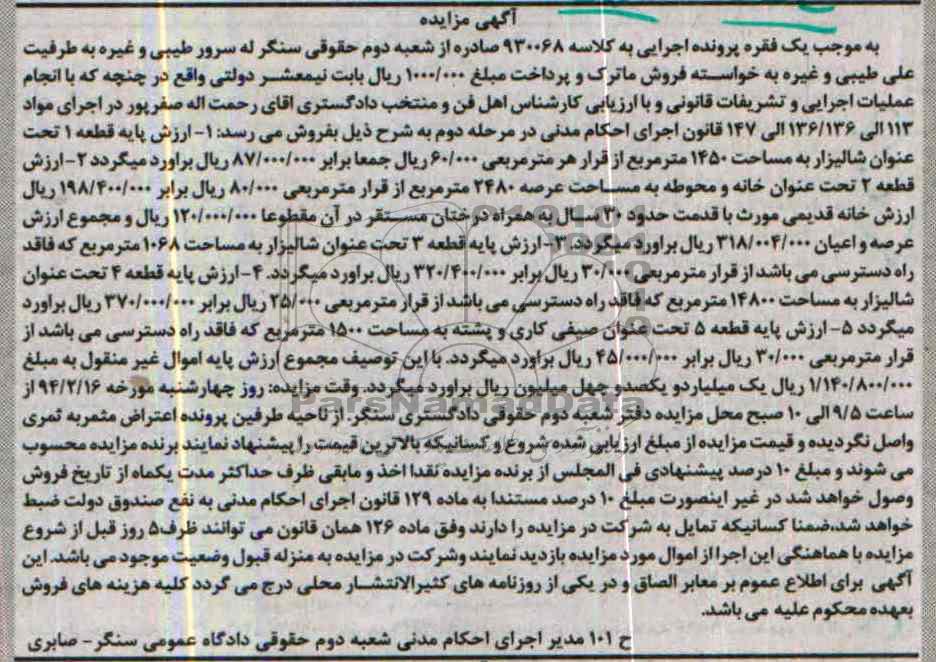 آگهی مزایده
به موجب یک فقره پرونده اجرایی به کلاسه ۹۳۰۰۶۸ صادره از شعبه دوم حقوقی سنگر له سرور طیبی و غیره به طرفیت
علی طیبی و غیره به خواسته فروش ماترک و پرداخت مبلغ ۱۰۰۰/۰۰۰ ریال بابت نیمعشر دولتی واقع در چنچه که با انجام
عملیات اجرایی و تشریفات قانونی و با ارزیابی کارشناس اهل فن و منتخب دادگستری اقای رحمت اله صفرپور در اجرای مواد
۱۱۳ الی ۱۳۶/۱۳۶ الی ۱۴۷ قانون اجرای احکام مدنی در مرحله دوم به شرح ذیل بفروش می رسد: ۱- ارزش پایه قطعه ۱ تحت
عنوان شالیزار به مساحت ۱۴۵۰ مترمربع از قرار هر مترمربعی ۶۰/۰۰۰ ریال جمعا برابر ۸۷/۰۰۰/۰۰۰ ریال براورد میگردد ۲- ارزش
قطعه ۲ تحت عنوان خانه و محوطه به مساحت عرصه ۲۴۸۰ مترمربع از قرار مترمربعی ۸۰/۰۰۰ ریال برابر ۱۹۸/۴۰۰/۰۰۰ ریال
ارزش خانه قدیمی مورث با قدمت حدود ۳۰ سال به همراه درختان مستقر در آن مقطوعا ۱۲۰/۰۰۰/۰۰۰ ریال و مجموع ارزش
عرصه و اعیان ۳۱۸/۰۰۴/۰۰۰ ریال براورد میگردد. ۳- ارزش پایه قطعه ۳ تحت عنوان شالیزار به مساحت ۱۰۶۸ مترمربع که فاقد
راه دسترسی می باشد از قرار مترمربعی ۳۰/۰۰۰ ریال برابر ۳۲۰/۴۰۰/۰۰۰ ریال براورد میگردد. ۴- ارزش پایه قطعه ۴ تحت عنوان
شالیزار به مساحت ۱۴۸۰۰ مترمربع که فاقد راه دسترسی می باشد از قرار مترمربعی ۲۵/۰۰۰ ریال برابر ۳۷۰/۰۰۰/۰۰۰ ریال براورد
میگردد ۵- ارزش پایه قطعه ۵ تحت عنوان صیفی کاری و پشته به مساحت ۱۵۰۰ مترمربع که فاقد راه دسترسی می باشد از
قرار مترمربعی ۳۰/۰۰۰ ریال برابر ۴۵/۰۰۰/۰۰۰ ریال براورد میگردد. با این توصیف مجموع ارزش پایه اموال غیر منقول به مبلغ
۱/۱۴۰/۸۰۰/۰۰۰ ریال یک میلیارد و یکصد و چهل میلیون ریال براورد میگردد. وقت مزایده: روز چهارشنبه مورخه ۹۴/۲/۱۶ از
ساعت ۹/۵ الی ۱۰ صبح محل مزایده دفتر شعبه دوم حقوقی دادگستری سنگر. از ناحیه طرفین پرونده اعتراض مثمربه ثمری
واصل نگردیده و قیمت مزایده از مبلغ ارزیابی شده شروع و کسانیکه بالاترین قیمت را پیشنهاد نمایند برنده مزایده محسوب
می شوند و مبلغ ۱۰ درصد پیشنهادی فی المجلس از برنده مزایده نقدا اخذ و مابقی ظرف حداکثر مدت یکماه از تاریخ فروش
وصول خواهد شد در غیر اینصورت مبلغ ۱۰ درصد مستندا به ماده ۱۲۹ قانون اجرای احکام مدنی به نفع صندوق دولت ضبط
خواهد شد،ضمنا کسانیکه تمایل به شرکت در مزایده را دارند وفق ماده ۱۲۶ همان قانون می توانند ظرف۵ روز قبل از شروع
مزایده با هماهنگی این اجرا از اموال مورد مزایده بازدید نمایند وشرکت در مزایده به منزله قبول وضعیت موجود می باشد. این
آگهی برای اطلاع عموم بر معابر الصاق و در یکی از روزنامه های کثیرالانتشار محلی درج می گردد کلیه هزینه های فروش
بعهده محکوم علیه می باشد.
ح ۱۰۱ مدیر اجرای احکام مدنی شعبه دوم حقوقی دادگاه عمومی سنگر- صابری
ParsNamadData